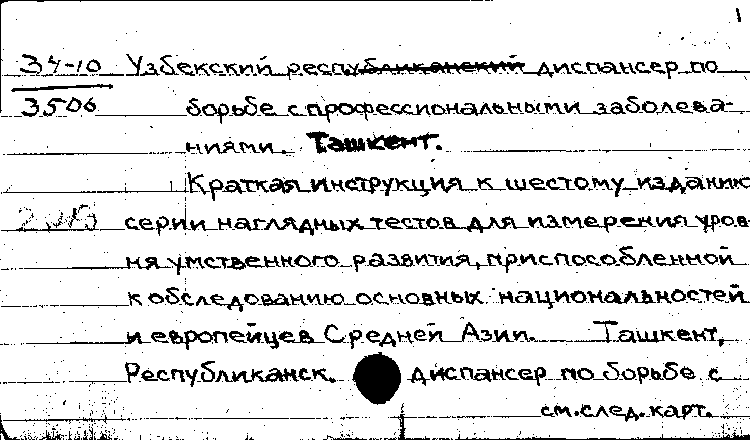 1
34-10 Узбекский республиканский диспансер по
3506 борьбе с профессиональными заболева-
ниями. Ташкент.
Краткая инструкция к шестому изданию
серии наглядных тестов для измерения уров-
ня умственного развития, приспособленной
к обследованию основных национальностей
и европейцев Средней Азии. Ташкент,
Республиканск. диспансер по борьбе с
см.след.карт.